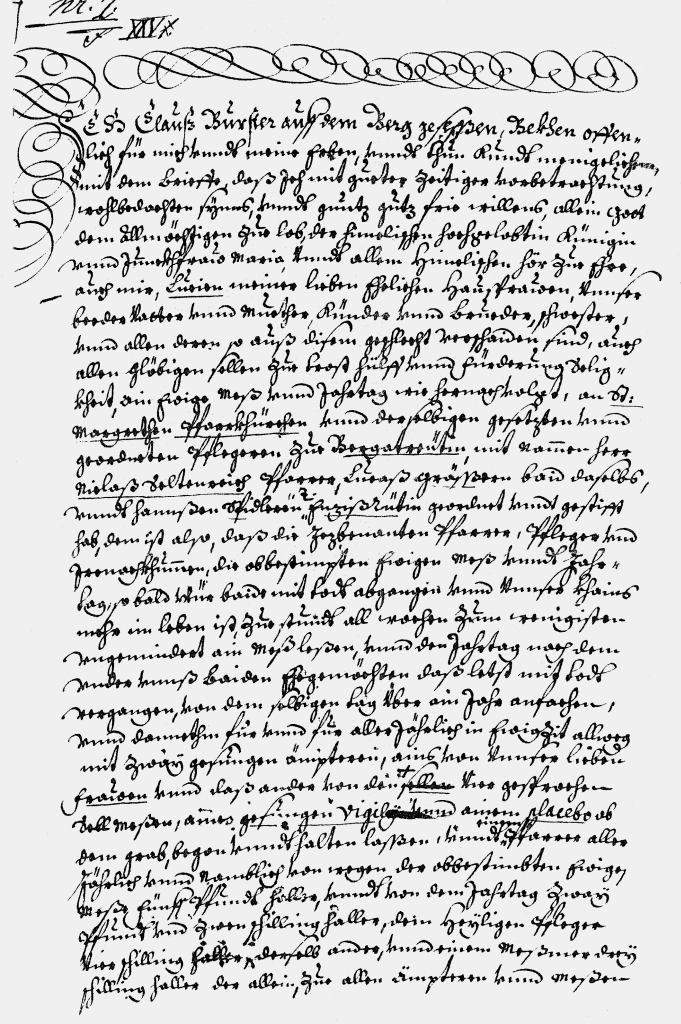 nr: 2
XIV
Ich Clauß Burster auff dem Berg gesessen, Bekhen offen-
lich für mich vnndt meine Erben, vnndt thun Kundt menigelichen,
mit dem Brieffe, daß Ich mit gueter Zeitiger vorbetrachtung,
wohlbedachten synns, vnndt guntz gutz frie willens, allein Gott
dem Allmächtigen Zue lob, der himelischen hochgelobtin Künigin
vnnd Junckhfrauw Maria, Vnndt allem Himelischen hör Zue Ehre,
auch mir, Lucien meiner lieben Ehelichen Hausfrauwen, Vnnser
beeder Vatter vnnd Muether, Künder vnnd brueder, schwester,
vnnd allen deren so auß disem geschlecht verschaiden sind, auch
allen glöbigen sellen Zue trost hülff vnnd fürderung Selig-
kheit, ain Ewige Meß vnnd Jahrtag wie hernach volgt, an St:
Margrethen Pfarrkhürchen vnnd derselbigen gesetzten vnnd
geordneten Pflegeren Zue Bergatreütin mit Nammen herr
Niclaß Seltenreich Pfarrer, Lucaß Gräßern baid daselbs,
vnndt hannßen Spidleren Z Enzißrütin geordnet vnndt gestifft
hab, dem ist also, daß die Jezbenanten Pfarrer, Pfleger vnd
Irenachkhummen, die obbestimpten Ewigen Meß vnndt Jahr-
tag, so bald Wür baide mit todt abgangen vnnd Vnnser khains
mehr im leben ist, Zue stundt all wochen Zum wenigisten
vngemindert ain Meß leßen, vnnd den Jahrtag nach dem
vnder vnnß baiden Ehegemächten daß letst mit todt
vergangen, von dem selbigen tag Vber ain Jahr anfachen,
vnnd dannethin für vnnd für aller Jährlich in Ewig Zit allweg
mit Zwäy gesungen ämpteren, ains von Vnnser lieben
frauwen vnnd daß ander von den sellen Vier gesprochen
Sell Meßen, aines gesungen Vigily vnnd ainem placebo ob
dem grab, begon vnndt halten laßen, vnndt einem Pfarrer aller
Jährlich vnnd Namblich von wegen der obbestimbten Ewigen
Meße fünff Pfundt haller, vnndt von dem Jahrtag Zwäy
Pfundt vnd Zwen schilling haller, dem Heyligen Pfleger
Vier schilling haller, derselb ander, vnnd einem Meßmer drey
schilling haller der allein, Zue allen ämpteren vnnd Meßen